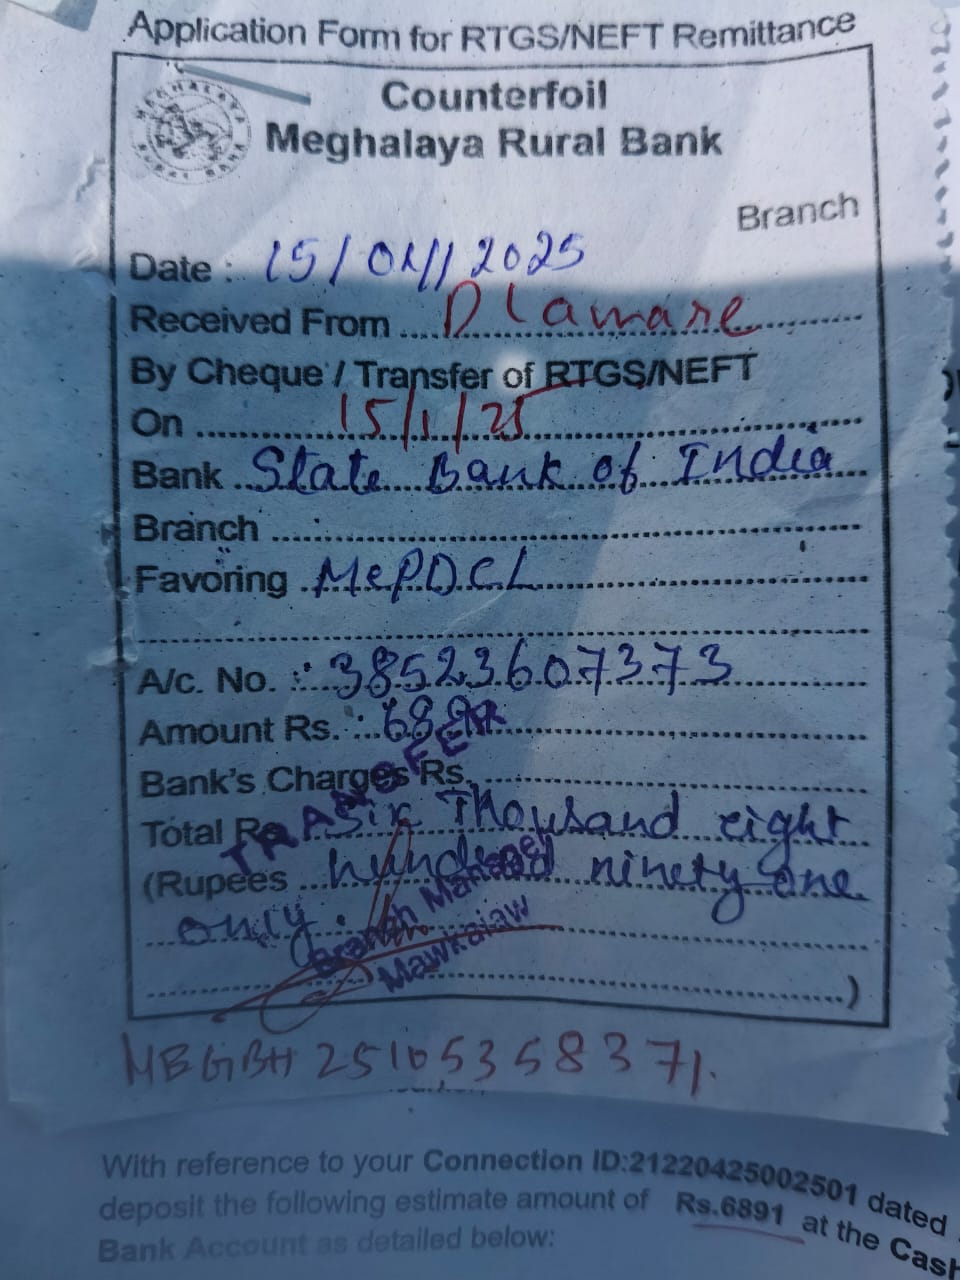 Application Form for RTGS/NEFT Remittance
Counterfoil
MEGHALAYA RURAL BANK
Meghalaya Rural Bank
Branch
Date : 15/04/2025
Received From ....D Lamare
By Cheque / Transfer of RTGS/NEFT
On 15/1/25
Bank State Bank of India
Branch
Favoring MePDCL
A/c. No. : 38523607373
Amount Rs. : 6891
TRANSFER
Bank's Charges Rs.
Total Rs Six Thousand eight
(Rupees hundred ninety one
only.
Branch Manager
Mawkaiaw
)
MBGBH25105358371.
With reference to your Connection ID:21220425002501 dated
deposit the following estimate amount of Rs.6891 at the Cash
Bank Account as detailed below: